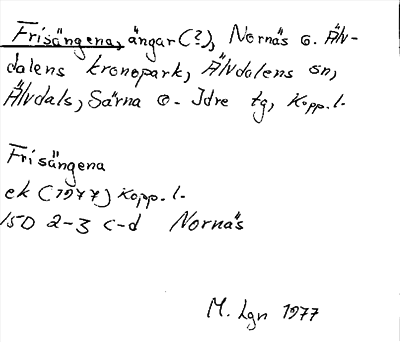 Frisängena, ängar (?), Nornäs o. Älv-
dalens kronopark, Älvdalens sn,
Älvdals, Särna o. Idre tg, Kopp. l.
Frisängena
ek (1977) Kopp. l.
15D 2-3 c-d Nornäs
M. Lgn 1977